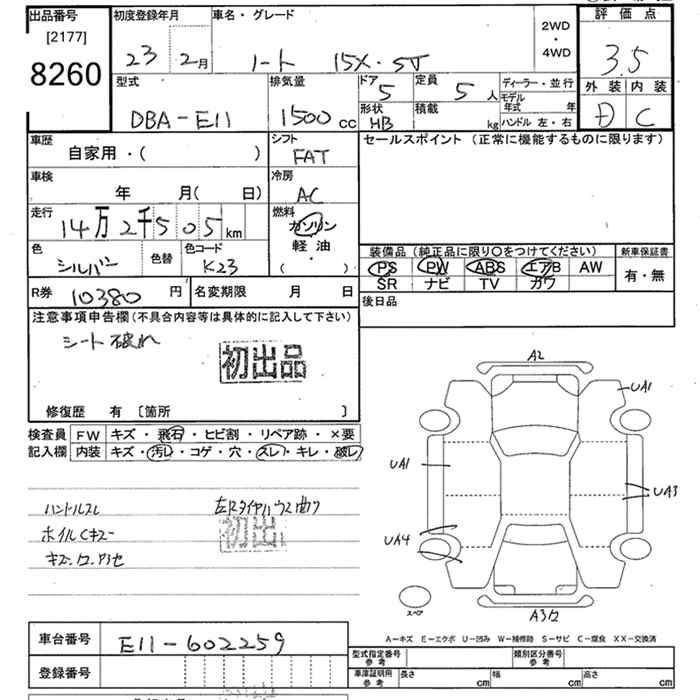 出品番号 初度登録年月 車名・グレード 評価点
[2177] 23年 2月 ノート 15X.SV 2WD・4WD 3.5
8260
型式 排気量 ドア 定員 ディーラー・並行 外装 内装
DBA-E11 1500cc 5 5人 モデル年式 年 D C
形状 HB 積載 kg ハンドル 左・右
車歴 シフト セールスポイント(正常に機能するものに限ります)
自家用・( ) FAT
車検 冷房
年 月( 日) AC
走行 燃料
14万2千505km ガソリン
軽油
( ・ )
色 色替 色コード 装備品(純正品に限り○をつけてください) 新車保証書
シルバー K23 PS PW ABS エアB AW 有・無
SR ナビ TV カワ
R券 10380円 名変期限 月 日 後日品
注意事項申告欄(不具合内容等は具体的に記入して下さい)
シート破れ
初出品
修復歴 有 [箇所 ]
検査員 FW キズ・飛石・ヒビ割・リペア跡・×要
記入欄 内装 キズ・汚レ・コゲ・穴・スレ・キレ・破レ
A2
UA1
UA1
UA3
UA4
ハンドルスレ
ホイルCキズ
初出品
スペア
A3
A-キズ E-エクボ U-凹み W-補修跡 S-サビ C-腐食 XX-交換済
車台番号 E11-602259
型式指定番号 参考 類別区分番号 参考
登録番号 車庫証明用 参考 長さ cm 幅 cm 高さ cm